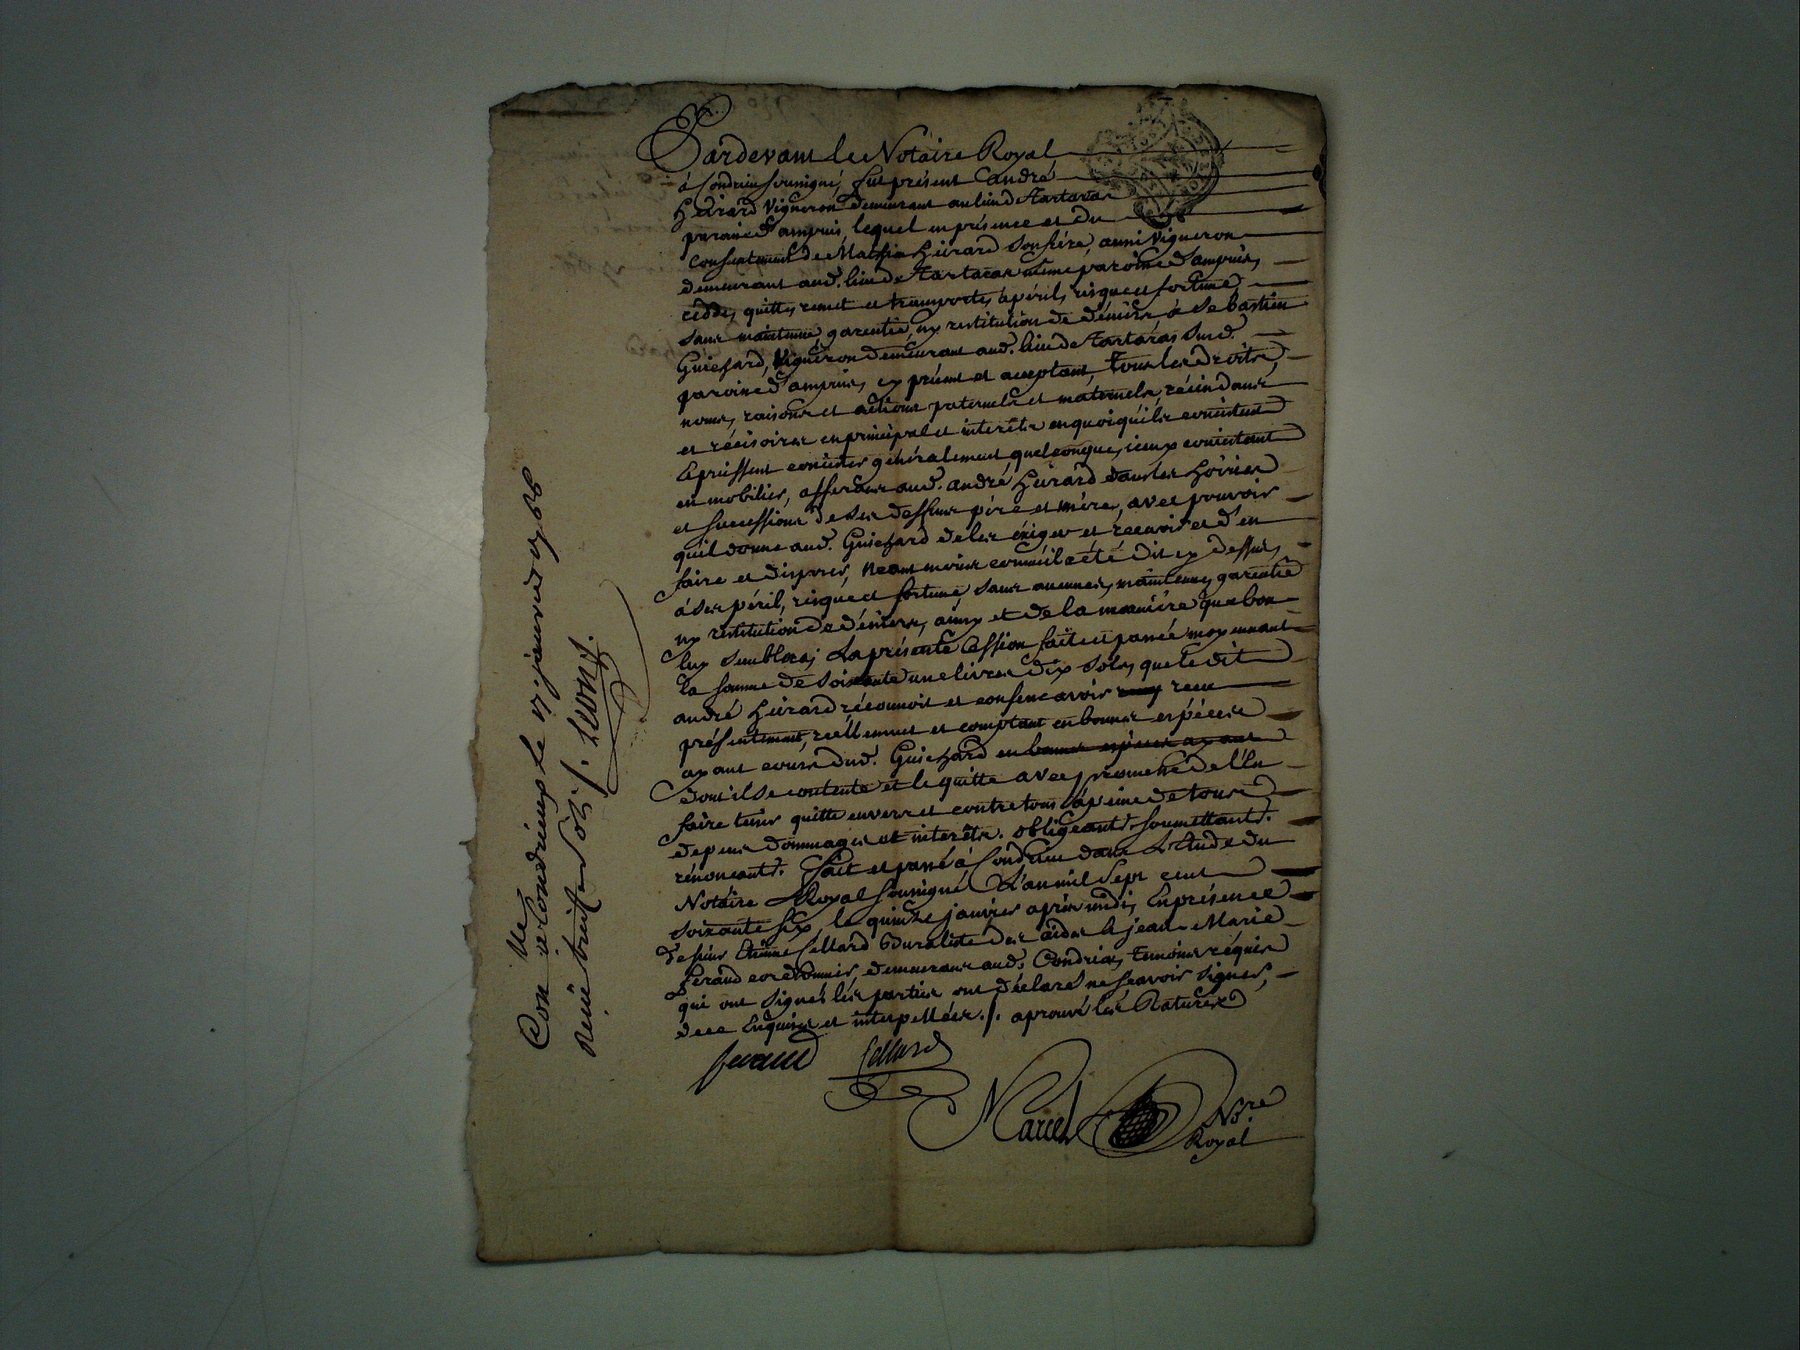 Pardevant le Notaire Royal
á Condrieu soussigné, fut présent André
Heirard Vigneron demeurant au lieu de Tartaras
paroisse d'ampuis, lequel en présence et du
consentement de Mathieu Heirard son frére, aussi Vigneron
demeurant aud. lieu de Tartaras même paroisse d'ampuis,
cédde, quitte, remet et transporte, á péril, risque et fortune
sans maintenue, garentie, ny restitution de déniers á Sebastien
Guichard, Vigneron demeurant aud. lieu de Tartaras sud.
paroisse d'ampuis, cy présent et acceptant, tous les droits,
noms, raisons et actions paternels et maternels, récindans
et récisoires en principal et interêts en quoi qu'ils consistent
& puissent consister généralement quelconque, iceux consistant
en mobilier, afferans aud. andré Heirard dans les hoiries
et successions de ses deffuns pére et mére, avec pouvoir
qu'il donne aud. Guichard de les éxiger et recevoir et d'en
faire et disposer, neanmoins comme il a été dit cy dessus,
á ses péril, risque et fortune, sans aucunes, maintenue, garentie
ny restitution de déniers, ainsy et de la maniére que bon
luy semblera; la présente cession faite et passée moyennant
la somme de soixante une livres dix sols, que le dit
andré Heirard réconnoit et confesse avoir reçu
présentement, réellement et comptant en bonnes espéces
ayant cours dud. Guichard en bonnes espéces ayant
dont il se contente et le quitte avec promesse de l'en
faire tenir quitte envers et contre tous á peine de tous
depens dommages et interêts. obligeant. soumettant.
rénonceant. Fait et passé á Condrieu dans L'étude du
Notaire Royal soussigné L'an mil sept cent
soixante six, le quinze janvier aprés midi, En présence
de sieur Etienne Cellard Buraliste des aides & jean-Marie
Ferand cordonnier, demeurans aud. Condrieu, temoins réquis
qui ont signés les parties ont déclaré ne sçavoir signer,
de ce Enquises et interpellées./. aprouvé les Ratures
ferand Cellard
Marcel Nore
Royal
Con lle á Condrieux le 17 janvier 1766